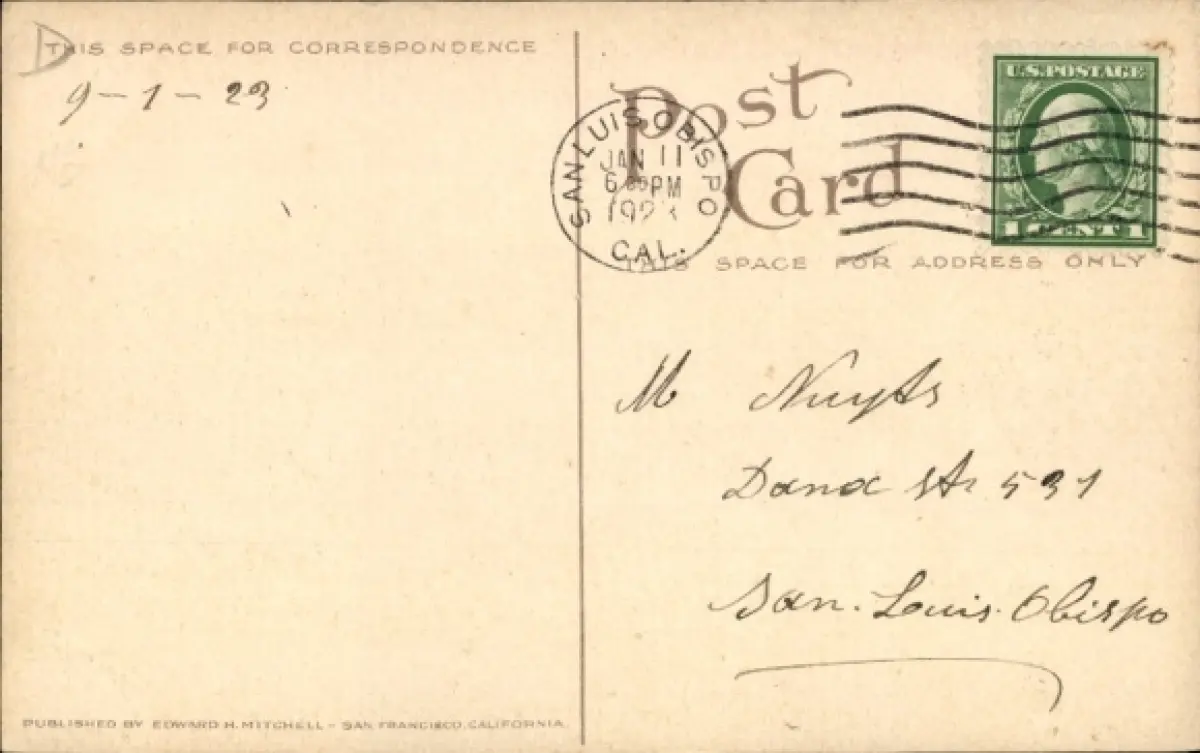 THIS SPACE FOR CORRESPONDENCE
9-1-23
Post
Card
SAN LUIS OBISPO
JAN 11
6 PM
1923
CAL.
U.S. POSTAGE
1 CENT 1
THIS SPACE FOR ADDRESS ONLY
M Nuyts
Dana St 531
San. Louis. Obispo
PUBLISHED BY EDWARD H. MITCHELL - SAN FRANCISCO, CALIFORNIA